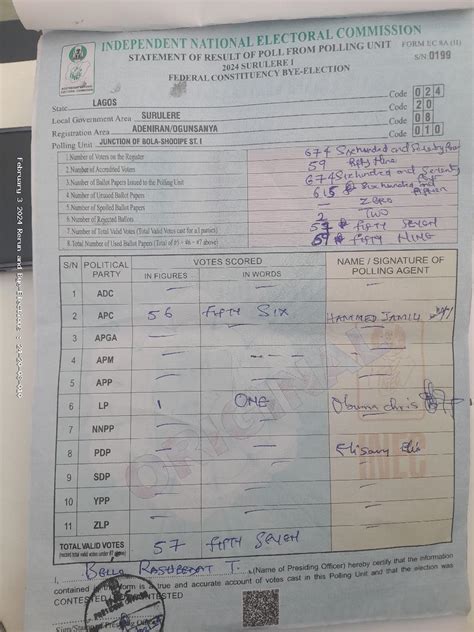 INDEPENDENT NATIONAL ELECTORAL COMMISSION
STATEMENT OF RESULT OF POLL FROM POLLING UNIT FORM EC 8A (II)
2024 SURULERE I S/N 0199
FEDERAL CONSTITUENCY BYE-ELECTION
State LAGOS Code 024
Local Government Area SURULERE Code 20
Registration Area ADENIRAN/OGUNSANYA Code 08
Polling Unit JUNCTION OF BOLA-SHODIPE ST. I Code 010
1. Number of Voters on the Register 674 Six hundred and Seventy four
2. Number of Accredited Voters 59 Fifty Nine
3. Number of Ballot Papers Issued to the Polling Unit 674 Six hundred and Seventy
4. Number of Unused Ballot Papers 615 Six hundred and Fifteen
5. Number of Spoiled Ballot Papers — ZERO
6. Number of Rejected Ballots 2 TWO
7. Number of Total Valid Votes (Total Valid Votes cast for all parties) 57 FIFTY SEVEN
8. Total Number of Used Ballot Papers (Total of #5 + #6 + #7 above) 59 FIFTY NINE
S/N POLITICAL PARTY VOTES SCORED NAME / SIGNATURE OF POLLING AGENT
IN FIGURES IN WORDS
1 ADC — —
2 APC 56 FIFTY SIX HAMMED JAMIU
3 APGA — —
4 APM — ---
5 APP — —
6 LP 1 ONE Obuma chris
7 NNPP — —
8 PDP — —
9 SDP — —
10 YPP — —
11 ZLP — —
TOTAL VALID VOTES 57 FIFTY SEVEN
(record total valid votes under #7 above)
I, Bello Rasheedat T. (Name of Presiding Officer) hereby certify that the information
contained in this form is a true and accurate account of votes cast in this Polling Unit and that the election was
CONTESTED CONTESTED
ORIGINAL
INEC
February 3 2024 Rerun and Bye-Elections